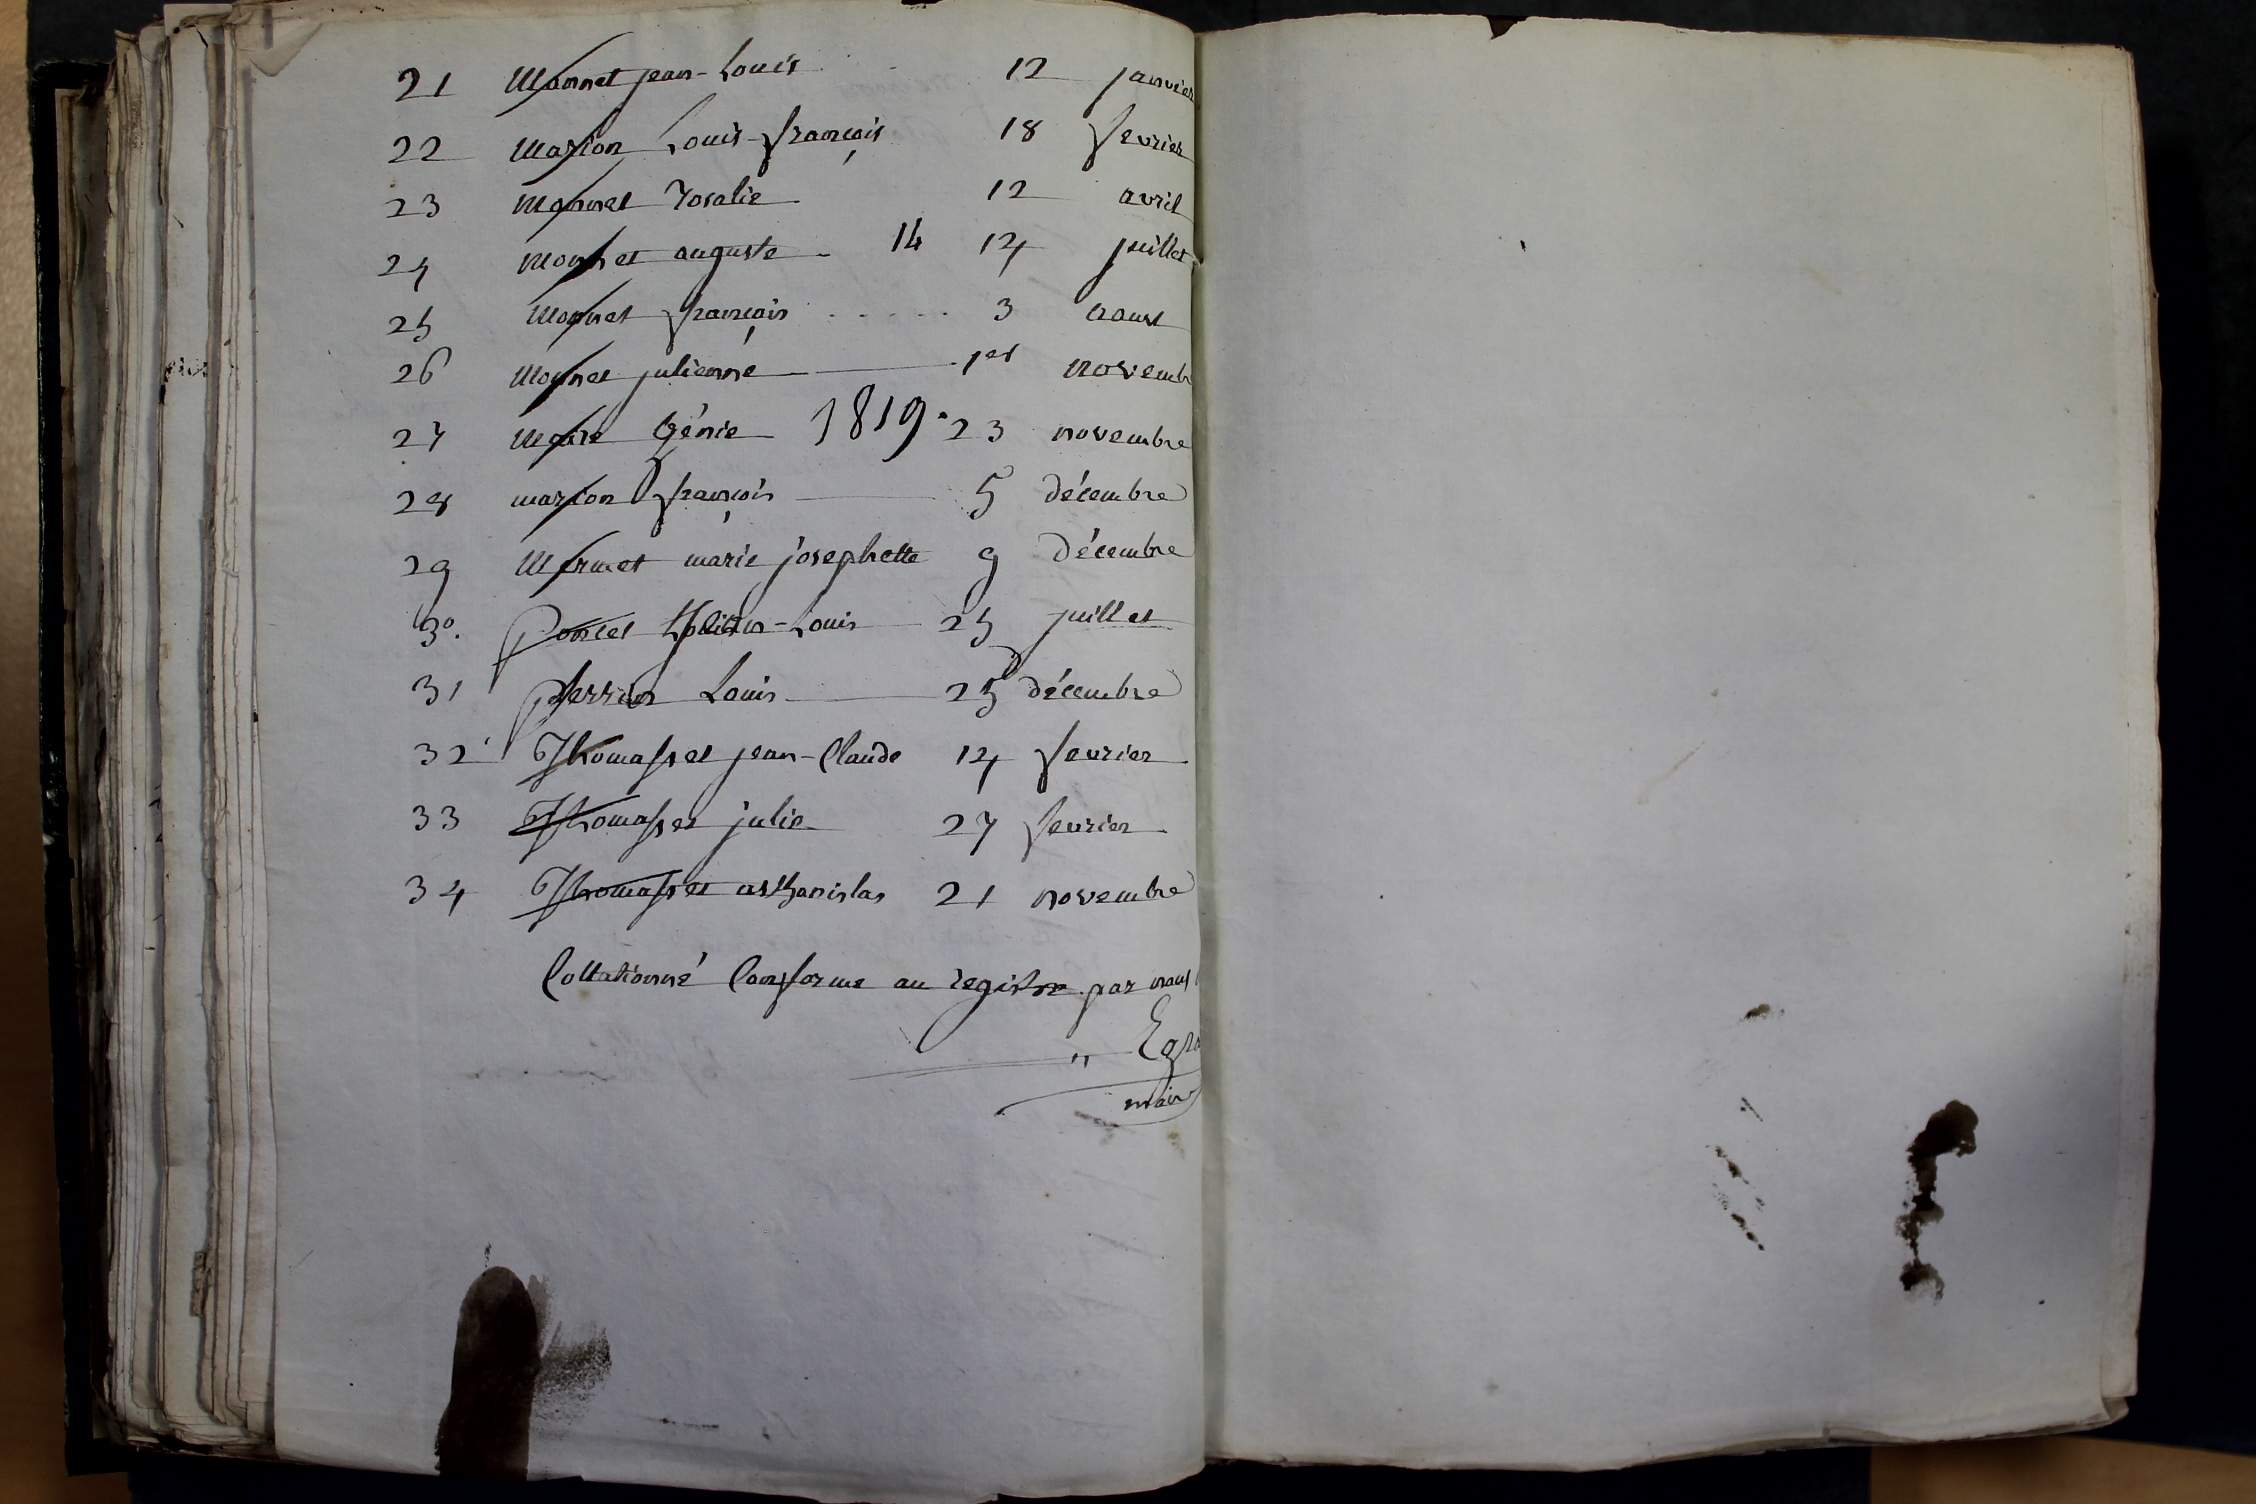 21 Monnet jean-Louis 12 janvier
22 Marion Louis-françois 18 fevrier
23 Monnet rosalie 12 avril
24 Monnet auguste 14 14 juillet
25 Monnet françois ..... 3 aoust
26 Monnet julienne 1er novemb
27 génie 1819. 23 novembre
28 marion françois 5 décembre
29 Mermet marie josephette 9 décembre
30. Poncet Louis 25 juillet
31 perrier Louis 25 décembre
32 Thomasset jean-Claude 14 fevrier
33 Thomasset julie 27 fevrier
34 Thomasset asthanislas 21 novembre
Collationné Conforme au registre par nous
" Egra
mair